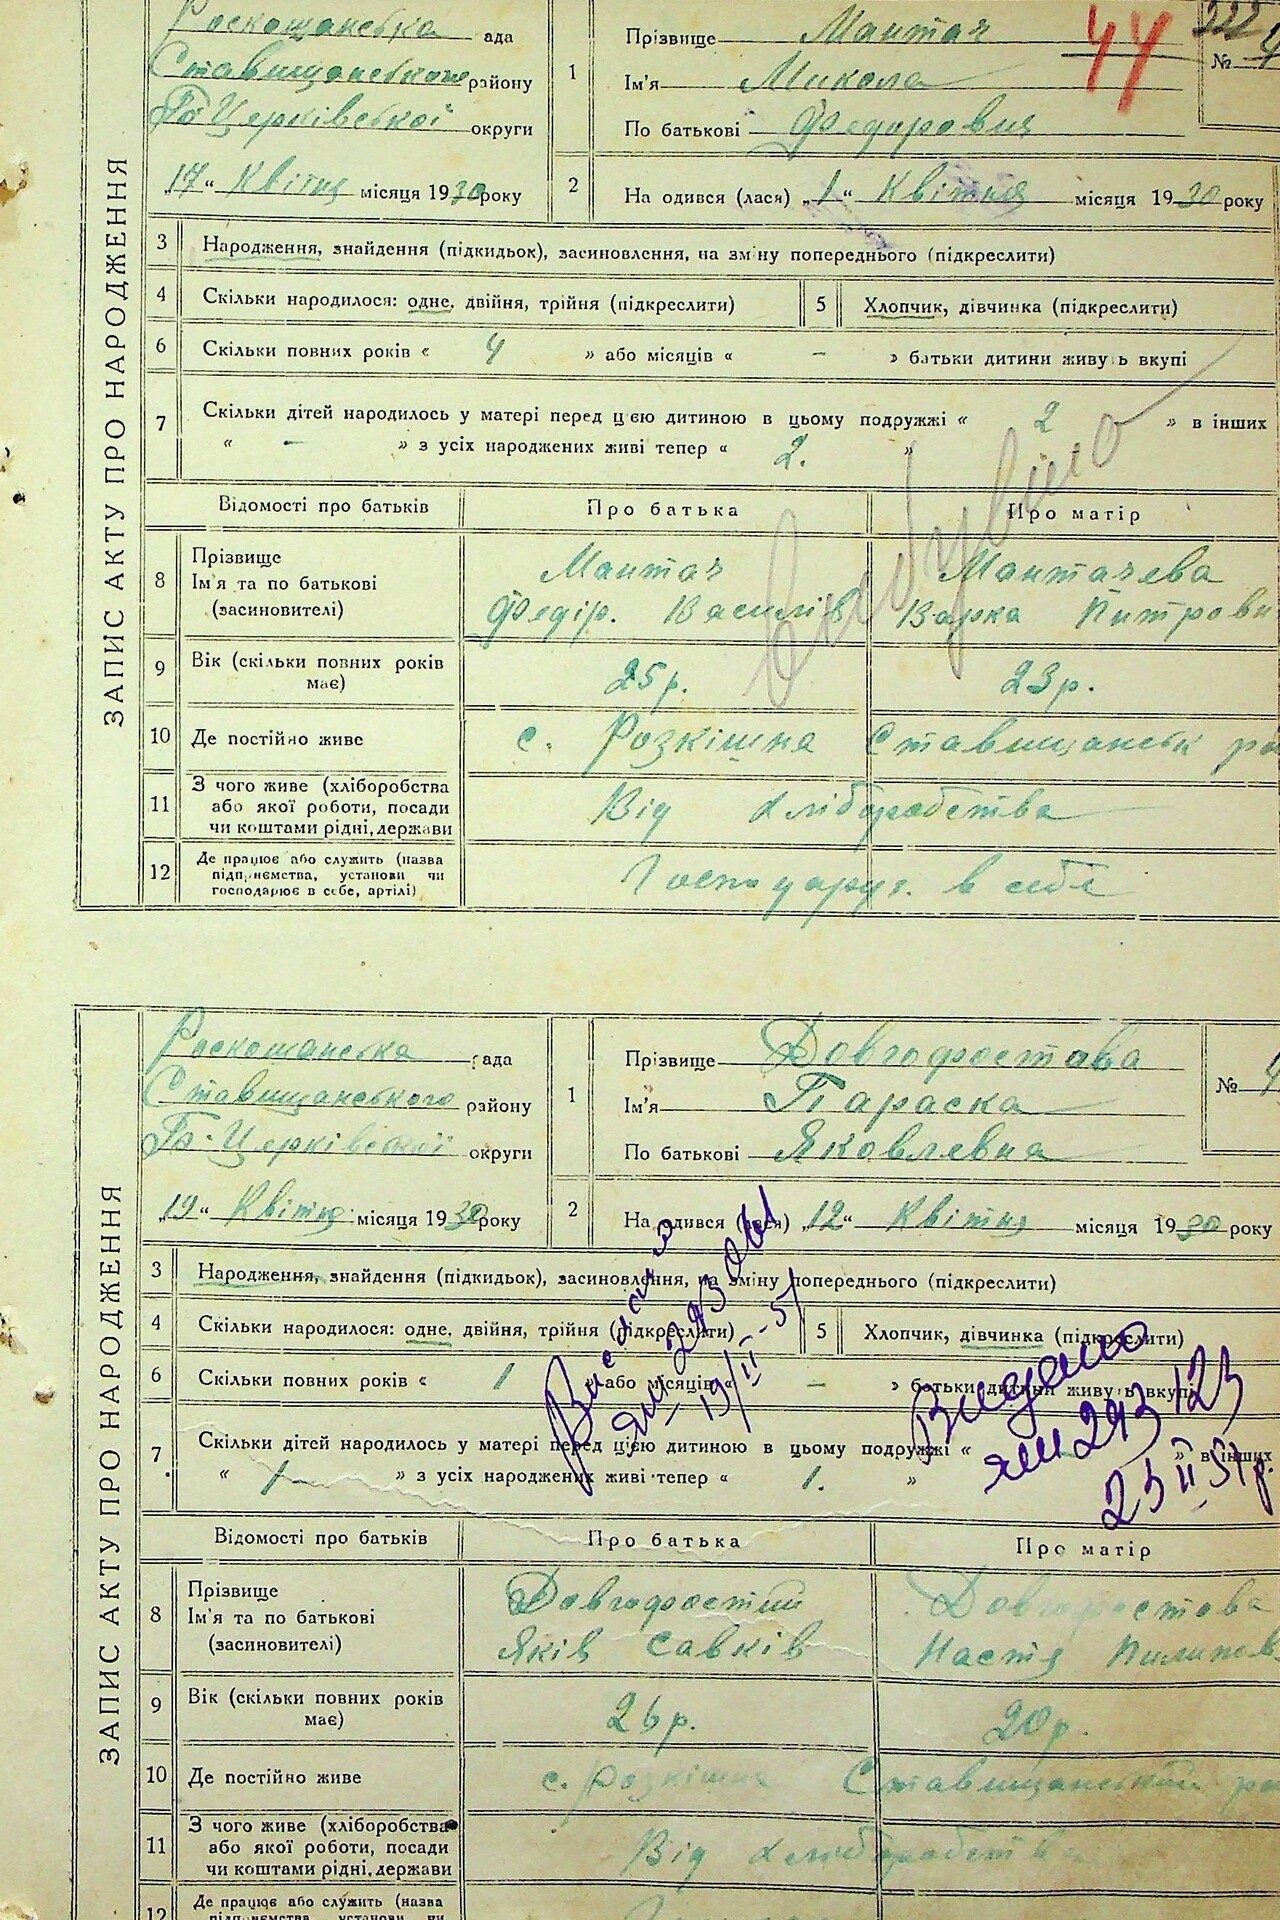 Роскощанська ада
Ставищанського району
Б-Церківської округи
„17“ Квітня місяця 1930 року
1
Прізвище Мантач
Ім'я Микола
По батькові Федорович
44
№ 4
2
На одився (лася) „1“ Квітня місяця 1930 року
ЗАПИС АКТУ ПРО НАРОДЖЕННЯ
3 Народження, знайдення (підкидьок), засиновлення, на зміну попереднього (підкреслити)
4 Скільки народилося: одне, двійня, трійня (підкреслити)
5 Хлопчик, дівчинка (підкреслити)
6 Скільки повних років « 4 » або місяців « - » батьки дитини живуть вкупі
7 Скільки дітей народилось у матері перед цією дитиною в цьому подружжі « 2 » в інших
« - » з усіх народжених живі тепер « 2. »
Відомості про батьків Про батька Про матір
8 Прізвище Мантач Мантачева
Ім'я та по батькові Федір. Василів Варка Питрови
(засиновителі)
9 Вік (скільки повних років має) 25р. 23р.
10 Де постійно живе с. Розкішна Ставищанськ ра
11 З чого живе (хліборобства
або якої роботи, посади Від хліборобства
чи коштами рідні, держави
12 Де працює або служить (назва
підприємства, установи чи Господарує. в себе
господарює в себе, артілі)
Роскошанська рада
Ставищанського району
Б-Церківської округи
„19“ Квітня місяця 1930 року
1
Прізвище Довгофостова
Ім'я Параска
По батькові Яковлевна
№ 4
2
На одився (лася) „12“ Квітня місяця 1930 року
ЗАПИС АКТУ ПРО НАРОДЖЕННЯ
3 Народження, знайдення (підкидьок), засиновлення, на зміну попереднього (підкреслити)
4 Скільки народилося: одне, двійня, трійня (підкреслити)
5 Хлопчик, дівчинка (підкреслити)
6 Скільки повних років « 1 » або місяців « - » батьки дитини живуть вкупі
7 Скільки дітей народилось у матері перед цією дитиною в цьому подружжі « » в інших
« 1 » з усіх народжених живі тепер « 1. »
19/II-51
Видано
ЯШ 293123
23 II 51 р.
Відомості про батьків Про батька Про матір
8 Прізвище Довгофостий Довгофостова
Ім'я та по батькові Яків Савків Настя Пилипов
(засиновителі)
9 Вік (скільки повних років має) 26р. 20р.
10 Де постійно живе с. Розкішна Ставищанський ра
11 З чого живе (хліборобства
або якої роботи, посади Від хліборобства
чи коштами рідні, держави
12 Де працює або служить (назва
підприємства, установи чи